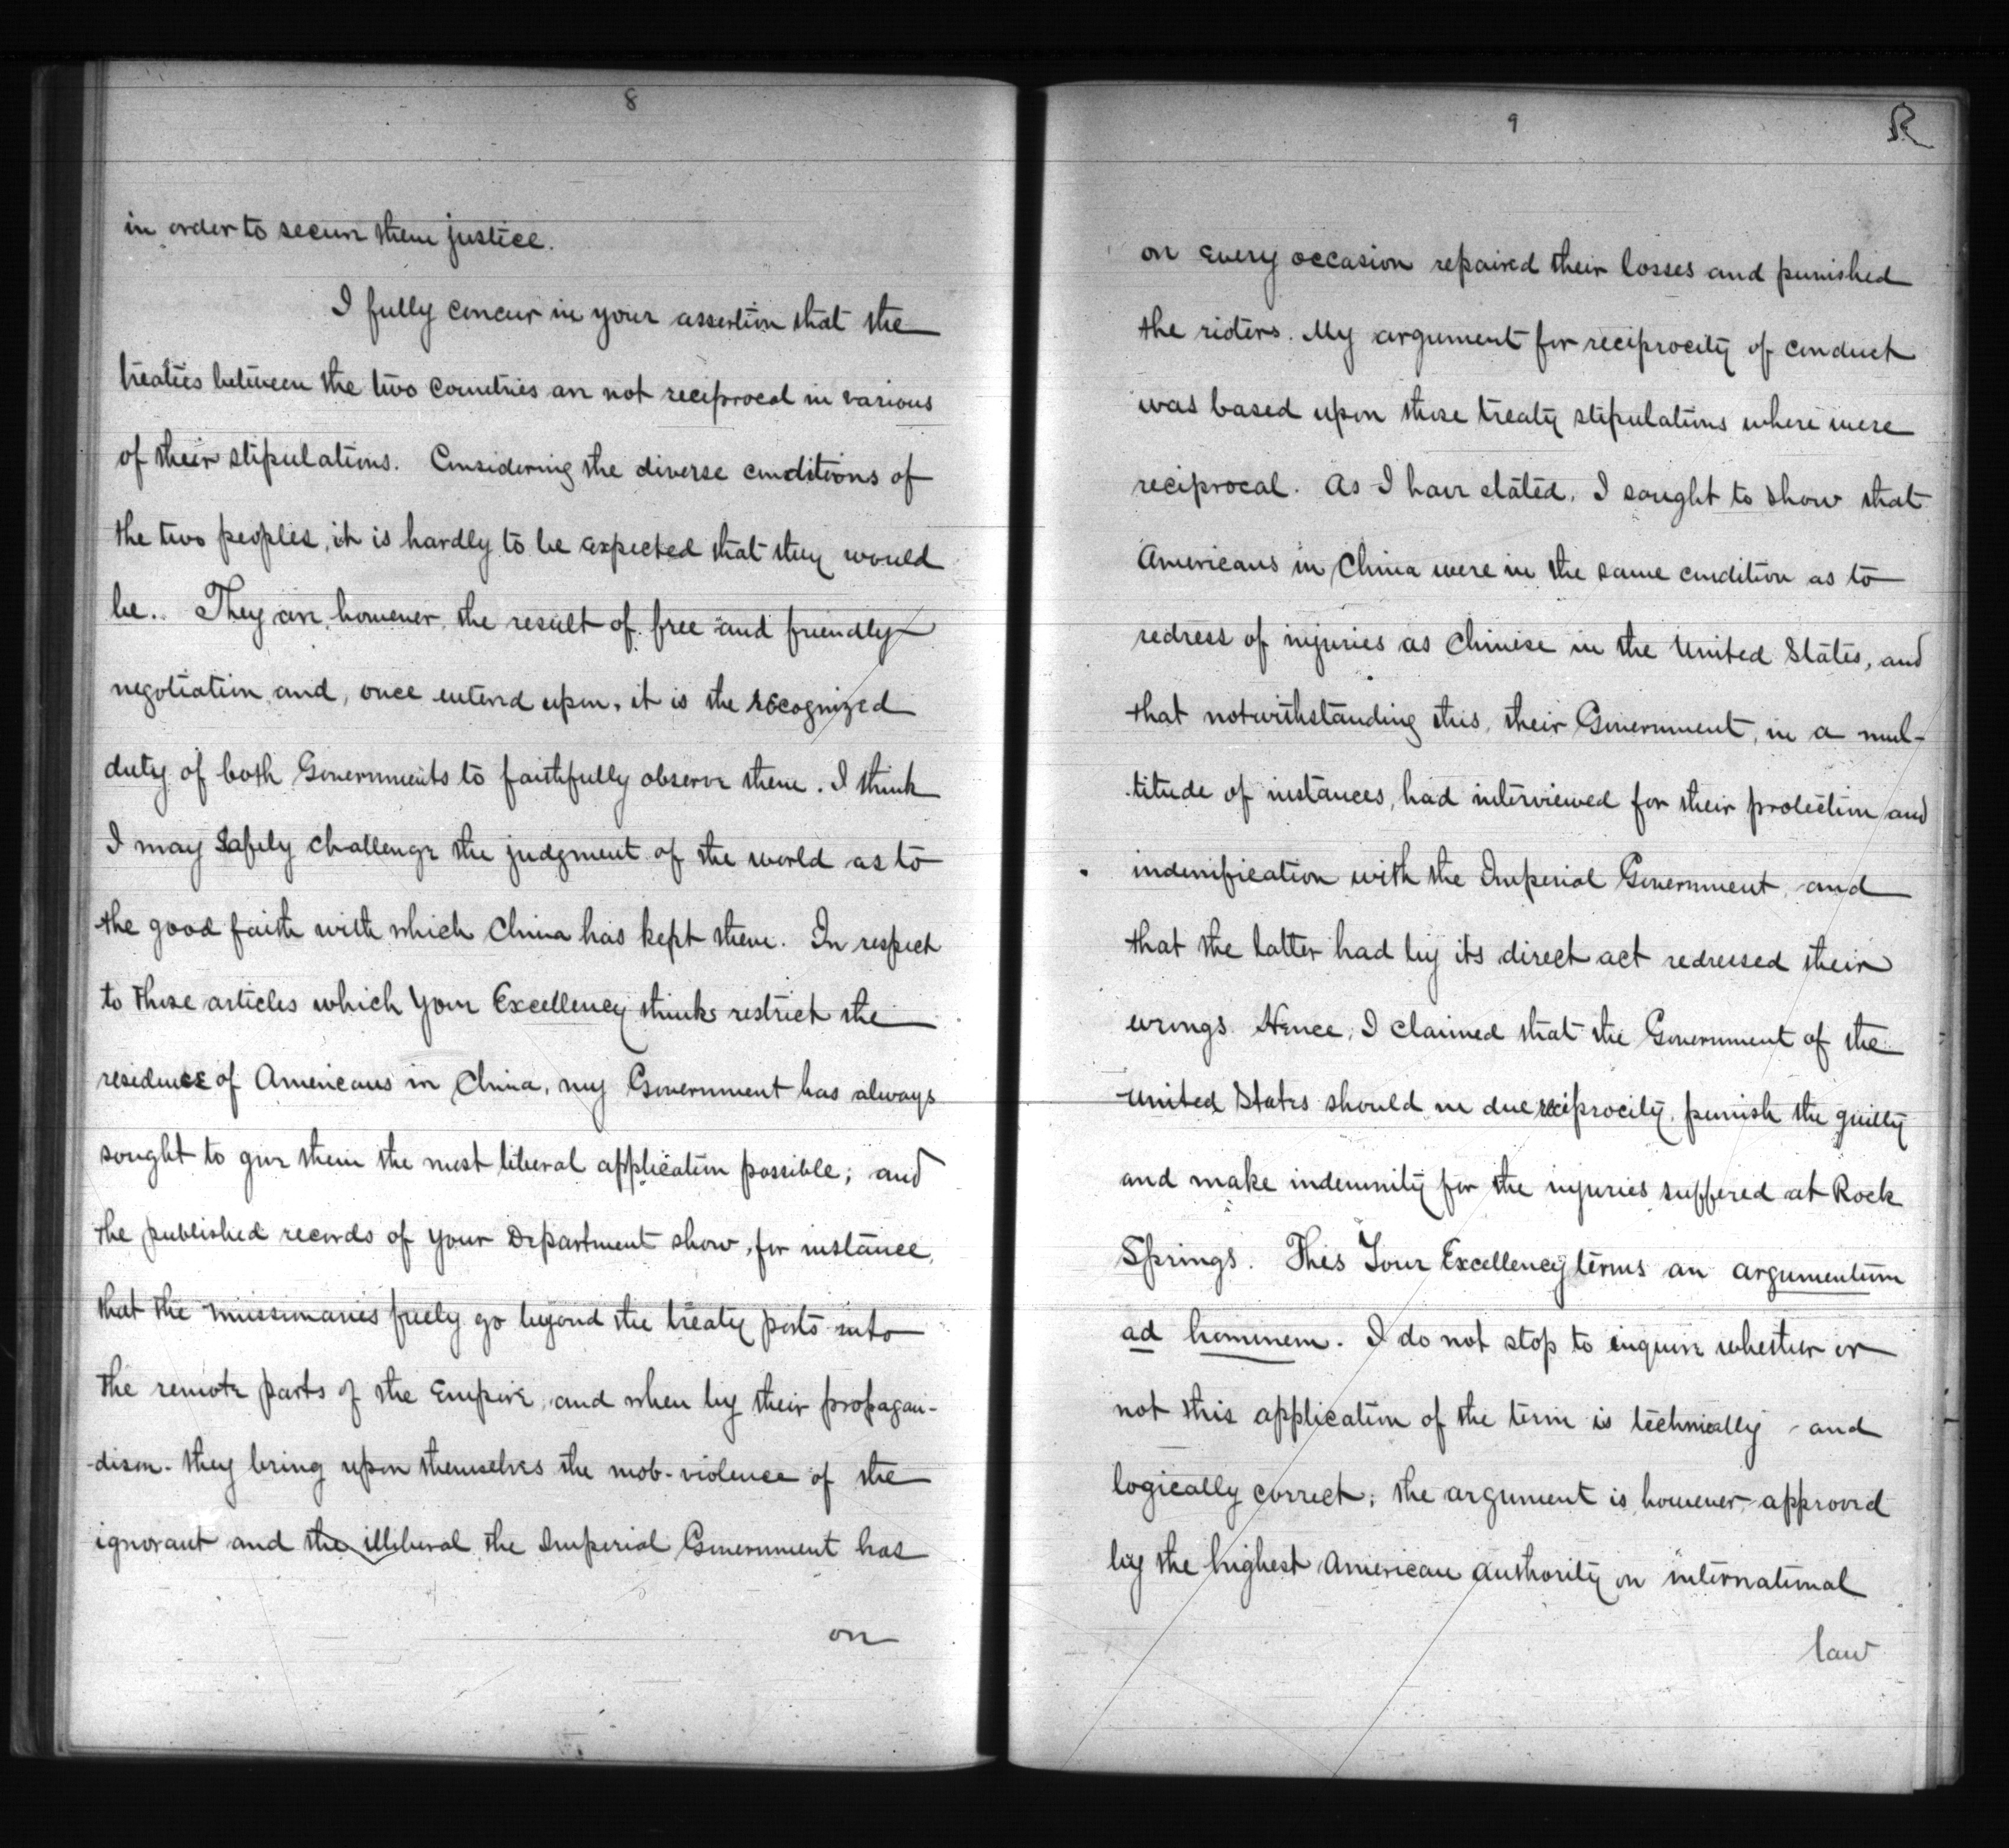 8
in order to secure them justice.
I fully concur in your assertion that the
treaties between the two countries are not reciprocal in various
of their stipulations. Considering the diverse conditions of
the two peoples, it is hardly to be expected that they would
be. They are, however, the result of free and friendly
negotiation and, once entered upon, it is the recognized
duty of both Governments to faithfully observe them. I think
I may safely challenge the judgment of the world as to
the good faith with which China has kept them. In respect
to those articles which Your Excellency thinks restrict the
residence of Americans in China, my Government has always
sought to give them the most liberal application possible; and
the published records of your Department show, for instance,
that the missionaries freely go beyond the treaty ports into
the remote parts of the Empire, and when by their propagan-
-dism- they bring upon themselves the mob-violence of the
ignorant and the illiberal the Imperial Government has
on
9
R
on every occasion repaired their losses and punished
the rioters. My argument for reciprocity of conduct
was based upon those treaty stipulations where were
reciprocal. As I have stated, I sought to show that
Americans in China were in the same condition as to
redress of injuries as Chinese in the United States, and
that notwithstanding this, their Government, in a mul-
titude of instances, had interviewed for their protection and
indemnification with the Imperial Government, and
that the latter had by its direct act redressed their
wrongs. Hence, I claimed that the Government of the
United States should in due reciprocity, punish the guilty
and make indemnity for the injuries suffered at Rock
Springs. This Your Excellency terms an argumentum
ad hominem. I do not stop to inquire whether or
not this application of the term is technically and
logically correct; the argument is, however, approved
by the highest American authority on international
law